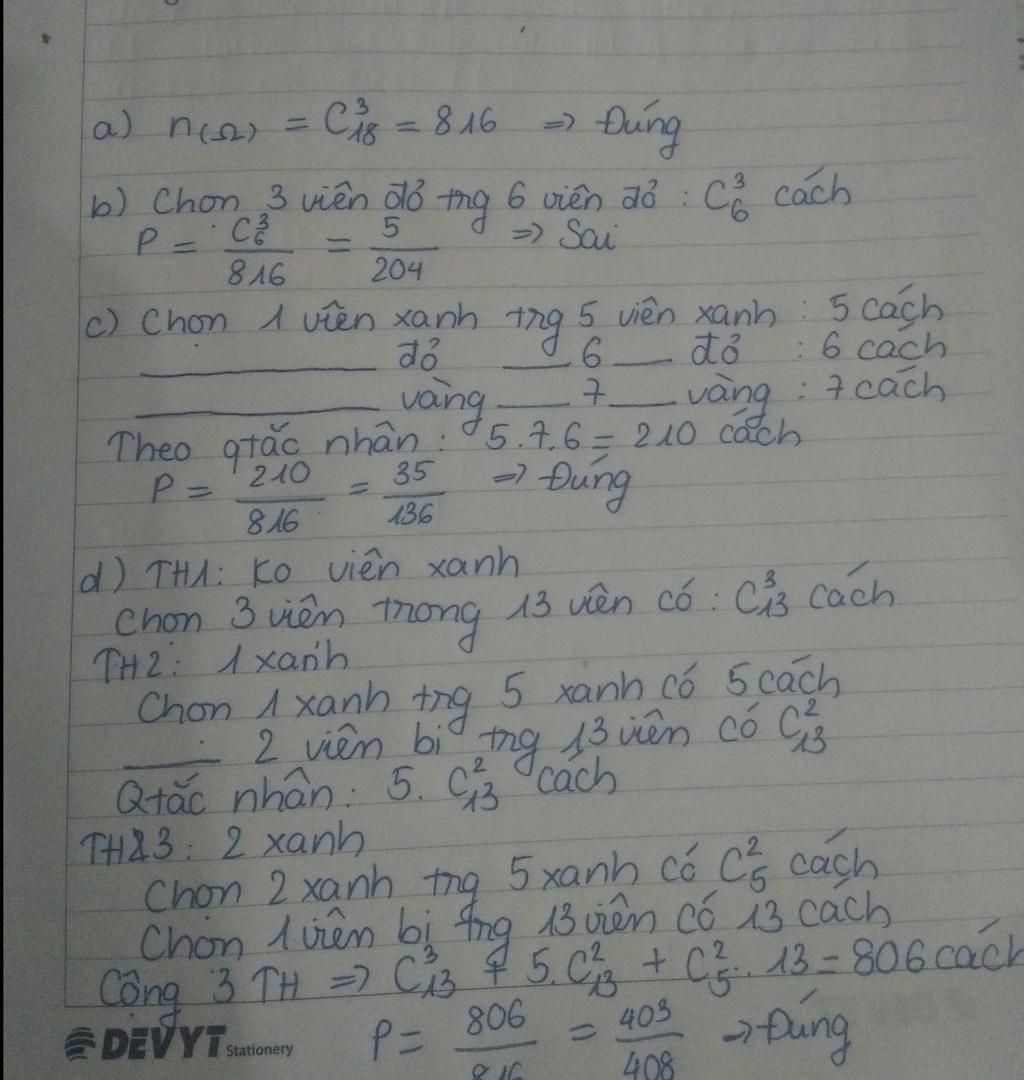 a) n(Ω) = C³₁₈ = 816 => Đúng
b) Chọn 3 viên đỏ trg 6 viên đỏ : C³₆ cách
P = C³₆/816 = 5/204 => Sai
c) Chọn 1 viên xanh trg 5 viên xanh : 5 cách
____ đỏ __ 6 __ đỏ : 6 cách
____ vàng __ 7 __ vàng : 7 cách
Theo qtắc nhân : 5.7.6 = 210 cách
P = 210/816 = 35/136 => Đúng
d) TH1: Ko viên xanh
Chọn 3 viên trong 13 viên có : C³₁₃ cách
TH2: 1 xanh
Chọn 1 xanh trg 5 xanh có 5 cách
__ 2 viên bi trg 13 viên có C²₁₃
Qtắc nhân: 5. C²₁₃ cách
TH3: 2 xanh
Chọn 2 xanh trg 5 xanh có C²₅ cách
Chọn 1 viên bi trg 13 viên có 13 cách
Cộng 3 TH => C³₁₃ + 5.C²₁₃ + C²₅.13 = 806 cách
P = 806/816 = 403/408 -> Đúng
DEVYT Stationery